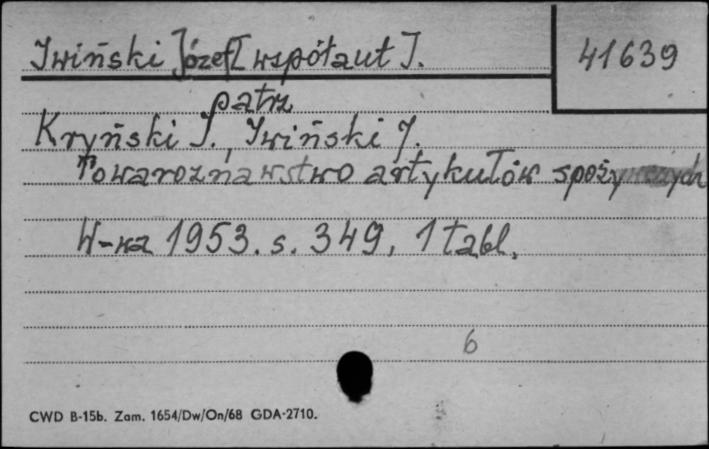 Iwiński Józef [współaut].
41639
patrz
Kryński J., Iwiński J.
Towaroznawstwo artykułów spożywczych
W-wa 1953. s. 349, 1 tabl.
6
CWD B-15b. Zam. 1654/Dw/On/68 GDA-2710.